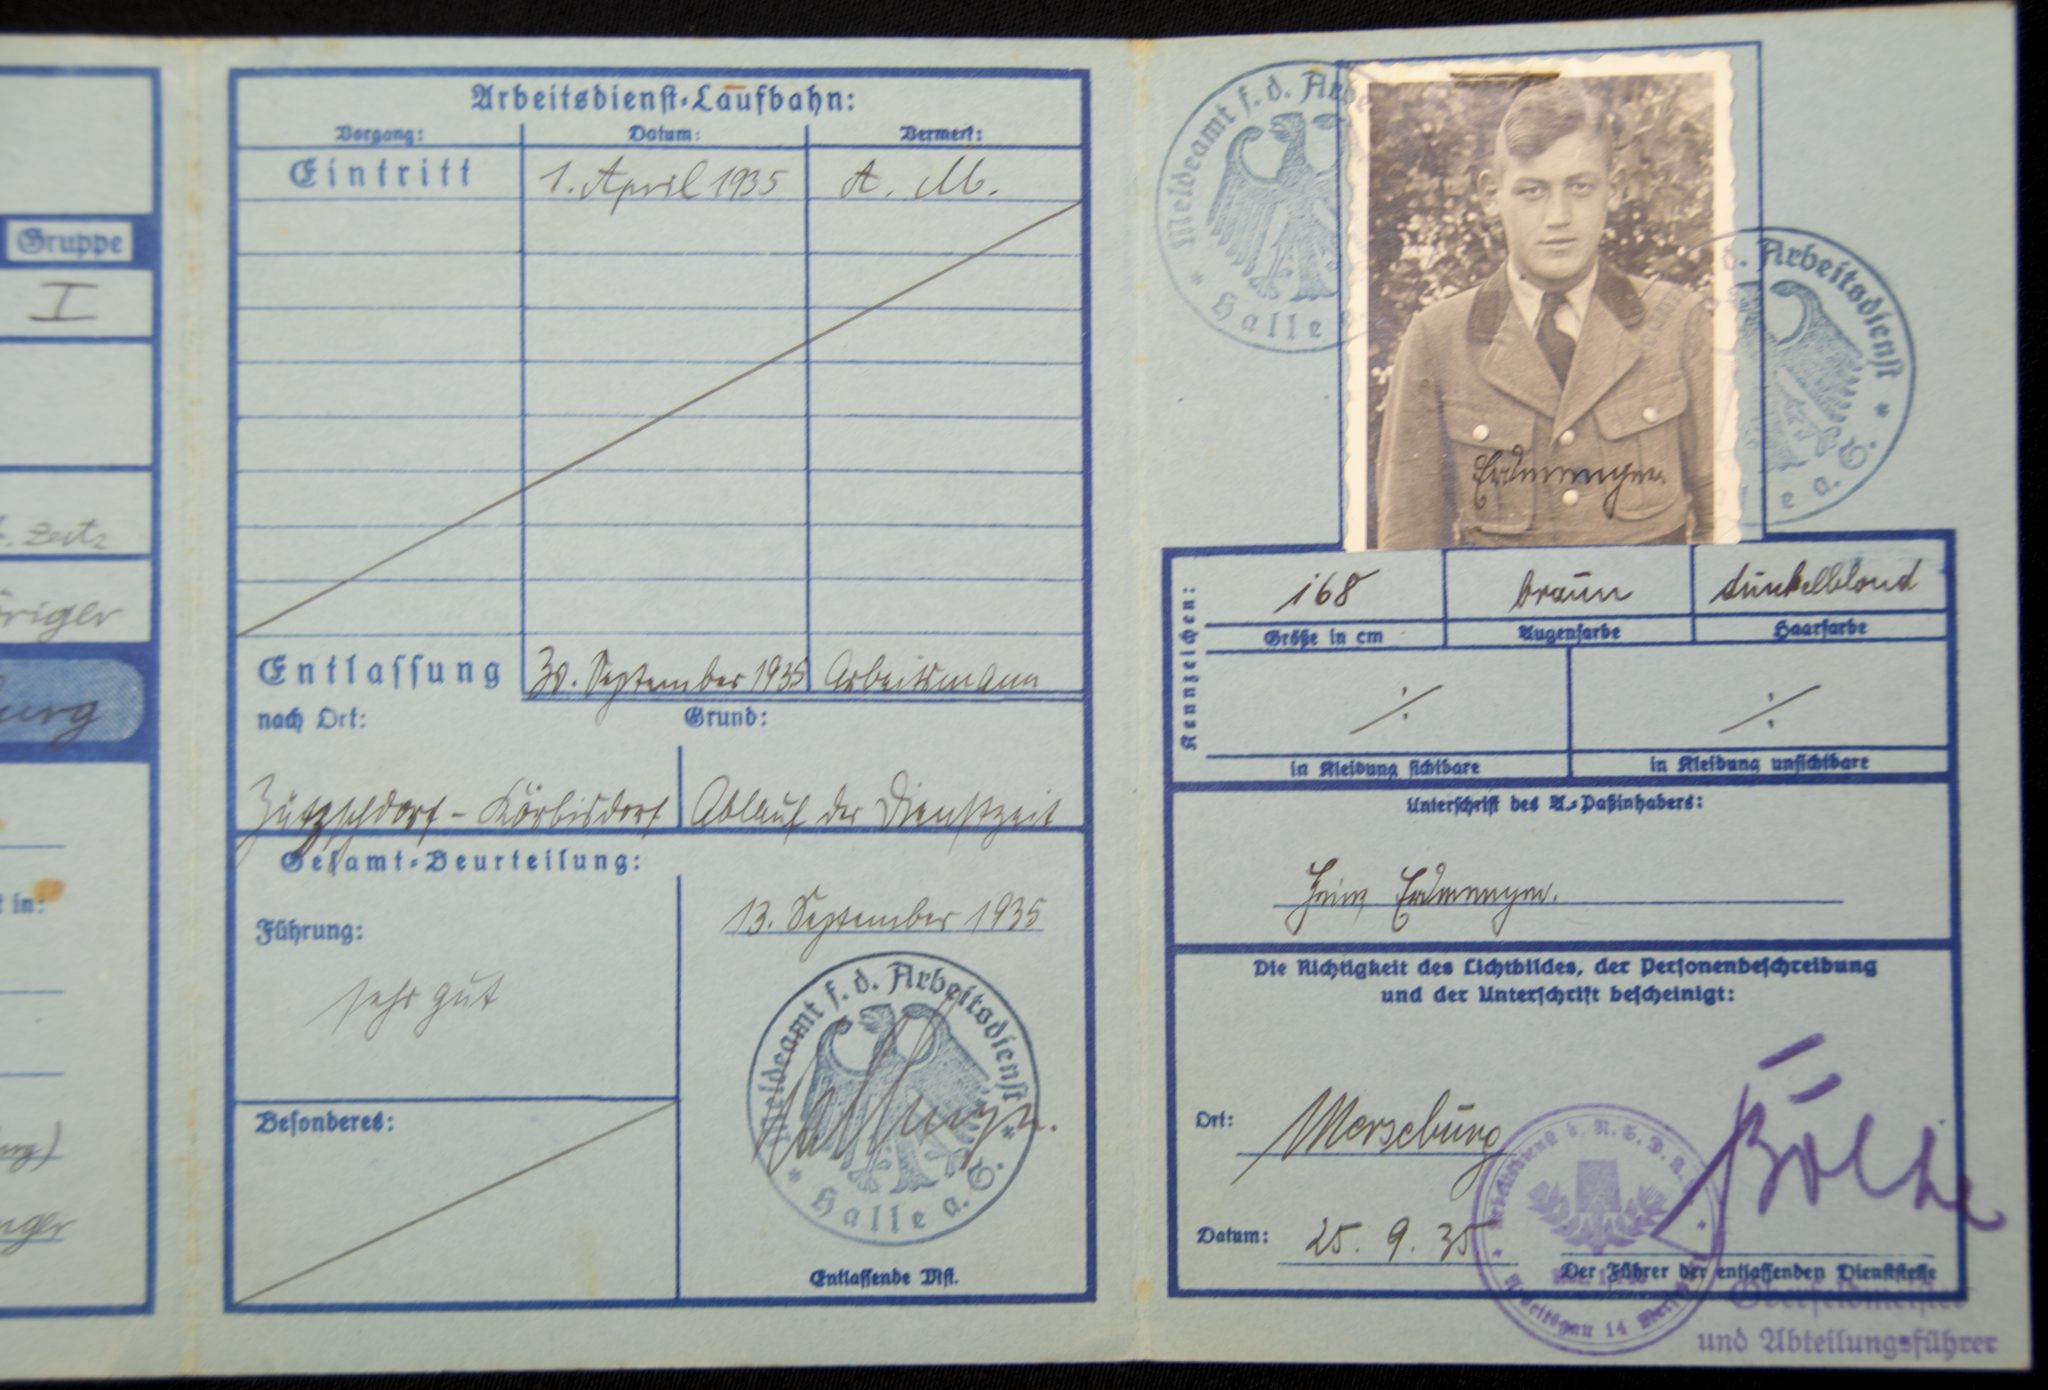 Gruppe
I
Zeitz
urg
t in:
Arbeitsdienst-Laufbahn:
Vorgang: Datum: Vermerk:
Eintritt 1. April 1935 A. M.
Entlassung 30. September 1935 Arbeitsmann
nach Ort: Grund:
Zützschdorf - Körbisdorf Ablauf der Dienstzeit
Gesamt-Beurteilung:
Führung:
sehr gut
13. September 1935
Besonderes:
Meldeamt f. d. Arbeitsdienst
* Halle a. S. *
Entlassende Mst.
Meldeamt f. d. Arbe
* Halle
d. Arbeitsdienst *
e a. S.
Kennzeichen:
168 braun dunkelblond
Größe in cm Augenfarbe Haarfarbe
./. ./.
in Kleidung sichtbare in Kleidung unsichtbare
Unterschrift des A.-Paßinhabers:
Heinz Erdmenger.
Die Richtigkeit des Lichtbildes, der Personenbeschreibung
und der Unterschrift bescheinigt:
Ort: Merseburg
Datum: 25. 9. 35
Arbeitsdienst d. N.S.D.A.
Arbeitsgau 14
Der Führer der entlassenden Dienststelle
Oberfeldmeister
und Abteilungsführer